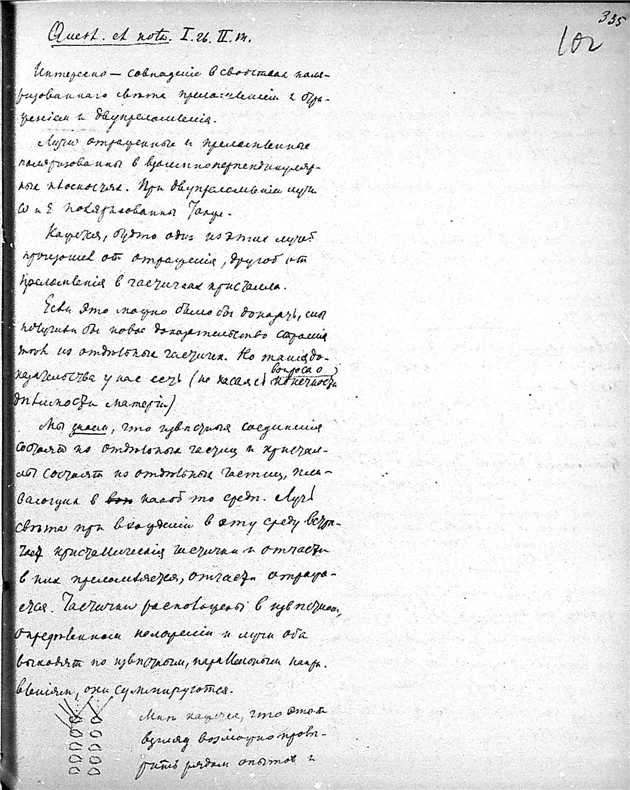 335
102
Quest. et notae. I. и. II. м.
Интересно — совпаденіе в свойствах поля-
ризованнаго свѣта преломленіем и отра-
женіем и двупреломленія.
Лучи отраженные и преломленные
поляризованны в взаимноперпендикуляр-
ных плоскостях. При двупреломленіи лучи
ω и ε поляризованны также.
Кажется, будто один из этих лучей
произошел от отраженія, другой от
преломленія в частичках кристалла.
Если это можно было бы доказать, мы
получили бы новое доказательство строенія
из отдѣльных частичек. Но такія до-
казательства у нас есть (не касаясь вопроса о конечности
дѣлимости матеріи)
Мы знаем, что извѣстныя соединенія
состоят из отдѣльных частиц и кристал-
лы состоят из отдѣльных частиц, пла-
вающих в какой то средѣ. Луч
свѣта при вхожденіи в эту среду встрѣ-
чает кристаллическія частички и отчасти
в них преломляется, отчасти отража-
ется. Частички расположены в извѣстном,
опредѣленном положеніи и лучи оба
выходят по извѣстным, параллельным напра-
вленіям, они суммируются.
Мнѣ кажется, что этот
взгляд возможно провѣ-
рить рядом опытов и